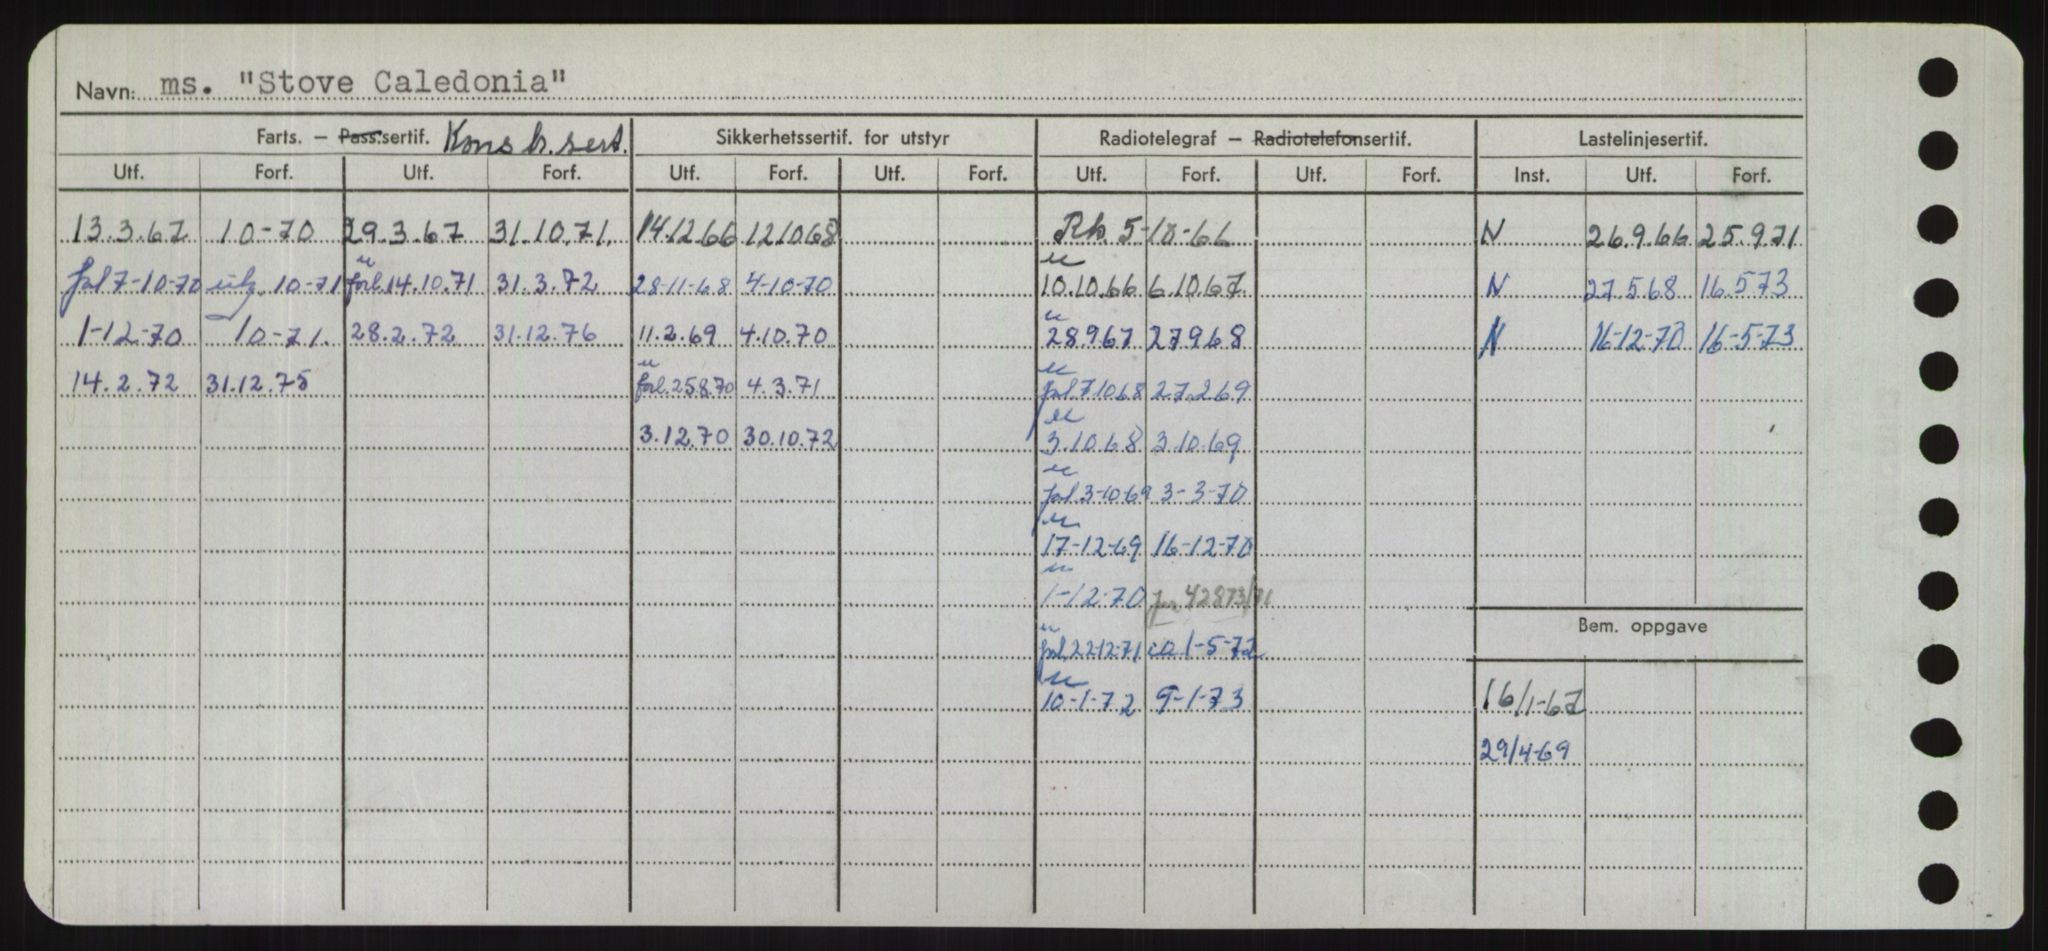 Navn: ms. "Stove Caledonia"
Farts. – Pass.sertif. Kons tr. sert. Sikkerhetssertif. for utstyr Radiotelegraf – Radiotelefonsertif. Lastelinjesertif.
Utf. Forf. Utf. Forf. Utf. Forf. Utf. Forf. Utf. Forf. Utf. Forf. Inst. Utf. Forf.
13.3.67 10-70 29.3.67 31.10.71. 14.12.66 12.10.68 Rh. 5-10-66 N 26.9.66 25.9.71
forl 7-10-70 10-71 forl. 14.10.71 31.3.72 28-11-68 4-10-70 10.10.66 6.10.67 N 27.5.68 16.5.73
1-12-70 10-71. 28.2.72 31.12.76 11.2.69 4.10.70 28.9.67 27.9.68 N 16-12-70 16-5-73
14.2.72 31.12.75 forl. 25.8.70 4.3.71 forl. 7.10.68 27.2.69
3.12.70 30.10.72 3.10.68 3.10.69
forl 3-10-69 3-3-70
17-12-69 16-12-70
1-12-70 jnr 42873/71
Bem. oppgave
forl. 22-12-71 ca 1-5-72
10-1-72 9-1-73 16/1-67
29/4-69